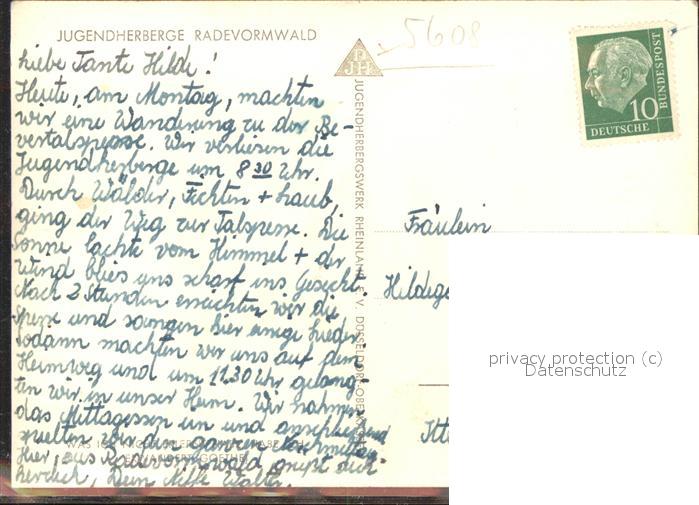 JUGENDHERBERGE RADEVORMWALD
5608
Liebe Tante Hilde!
Heute, am Montag, machten
wir eine Wanderung zu der Be-
vertalsperre. Wir verliesen die
Jugendherberge um 8 30 Uhr.
Durch Wälder, Fichten + Laub,
ging der Weg zur Talsperre. Die
Sonne lachte vom Himmel + der
Wind blies uns scharf ins Gesicht.
Nach 2 Stunden erreichten wir die
Sperre und sangen hier einige Lieder.
Sodann machten wir uns auf den
Heimweg und um 11.30 Uhr gelang-
ten wir in unser Heim. Wir nahmen
das Mittagessen ein und anschließend
spielten wir den ganzen Nachmittag
Hier, aus Radevormwald grüßt dich
herzlich, Dein Neffe Walter.
JUGENDHERBERGSWERK RHEINLAND E. V. DÜSSELDORF-OBERKASSEL
DJH
10
DEUTSCHE
BUNDESPOST
Fräulein
Hildeg
privacy protection (c)
Datenschutz